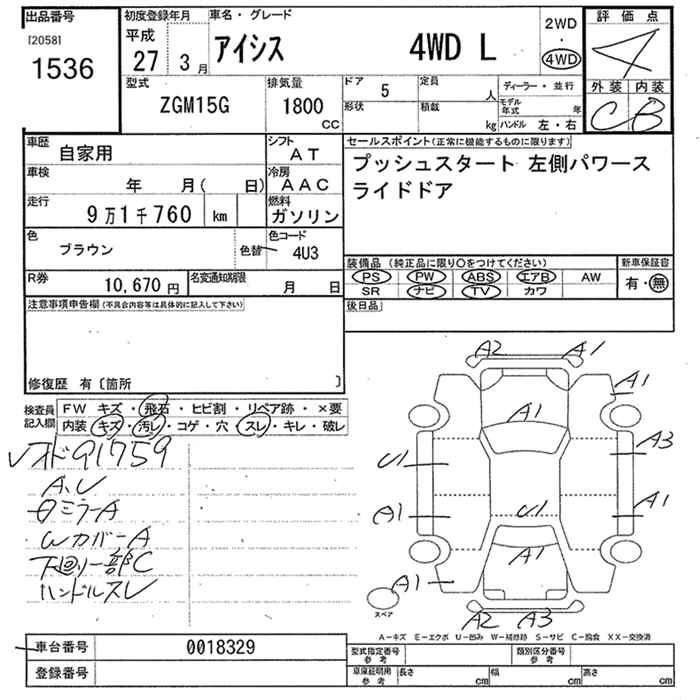 出品番号
[2058]
1536
初度登録年月
平成
27 3月
車名・グレード
アイシス 4WD L
2WD
・
4WD
評価点
4
外装 内装
C B
型式
ZGM15G
排気量
1800
CC
ドア 5
形状
定員 人
積載 kg
ディーラー・並行
モデル年式 年
ハンドル 左・右
車歴
自家用
シフト
AT
車検
年 月( 日)
冷房
AAC
走行
9万1千760 km
燃料
ガソリン
色
ブラウン
色替
色コード
4U3
R券
10,670 円
名変通知期限
月 日
セールスポイント(正常に機能するものに限ります)
プッシュスタート 左側パワース
ライドドア
装備品 (純正品に限り○をつけてください)
PS PW ABS エアB AW
SR ナビ TV カワ
新車保証書
有・無
後日品
注意事項申告欄(不具合内容等は具体的に記入して下さい)
修復歴 有〔箇所 〕
検査員
記入欄
FW キズ・飛石・ヒビ割・リペア跡・×要
内装 キズ・汚レ・コゲ・穴・スレ・キレ・破レ
レオド91759
A、U
日ミラーA
Wカバー A
下回り一部C
ハンドルスレ
A2 A1
A1
A1
U1 A3
A1 U1 A1
A1
A1
A2 A3
スペア
A-キズ E-エクボ U-凹み W-補修跡 S-サビ C-腐食 XX-交換済
車台番号 0018329
登録番号
型式指定番号
参考
類別区分番号
参考
車庫証明用
参考
長さ cm
幅 cm
高さ cm